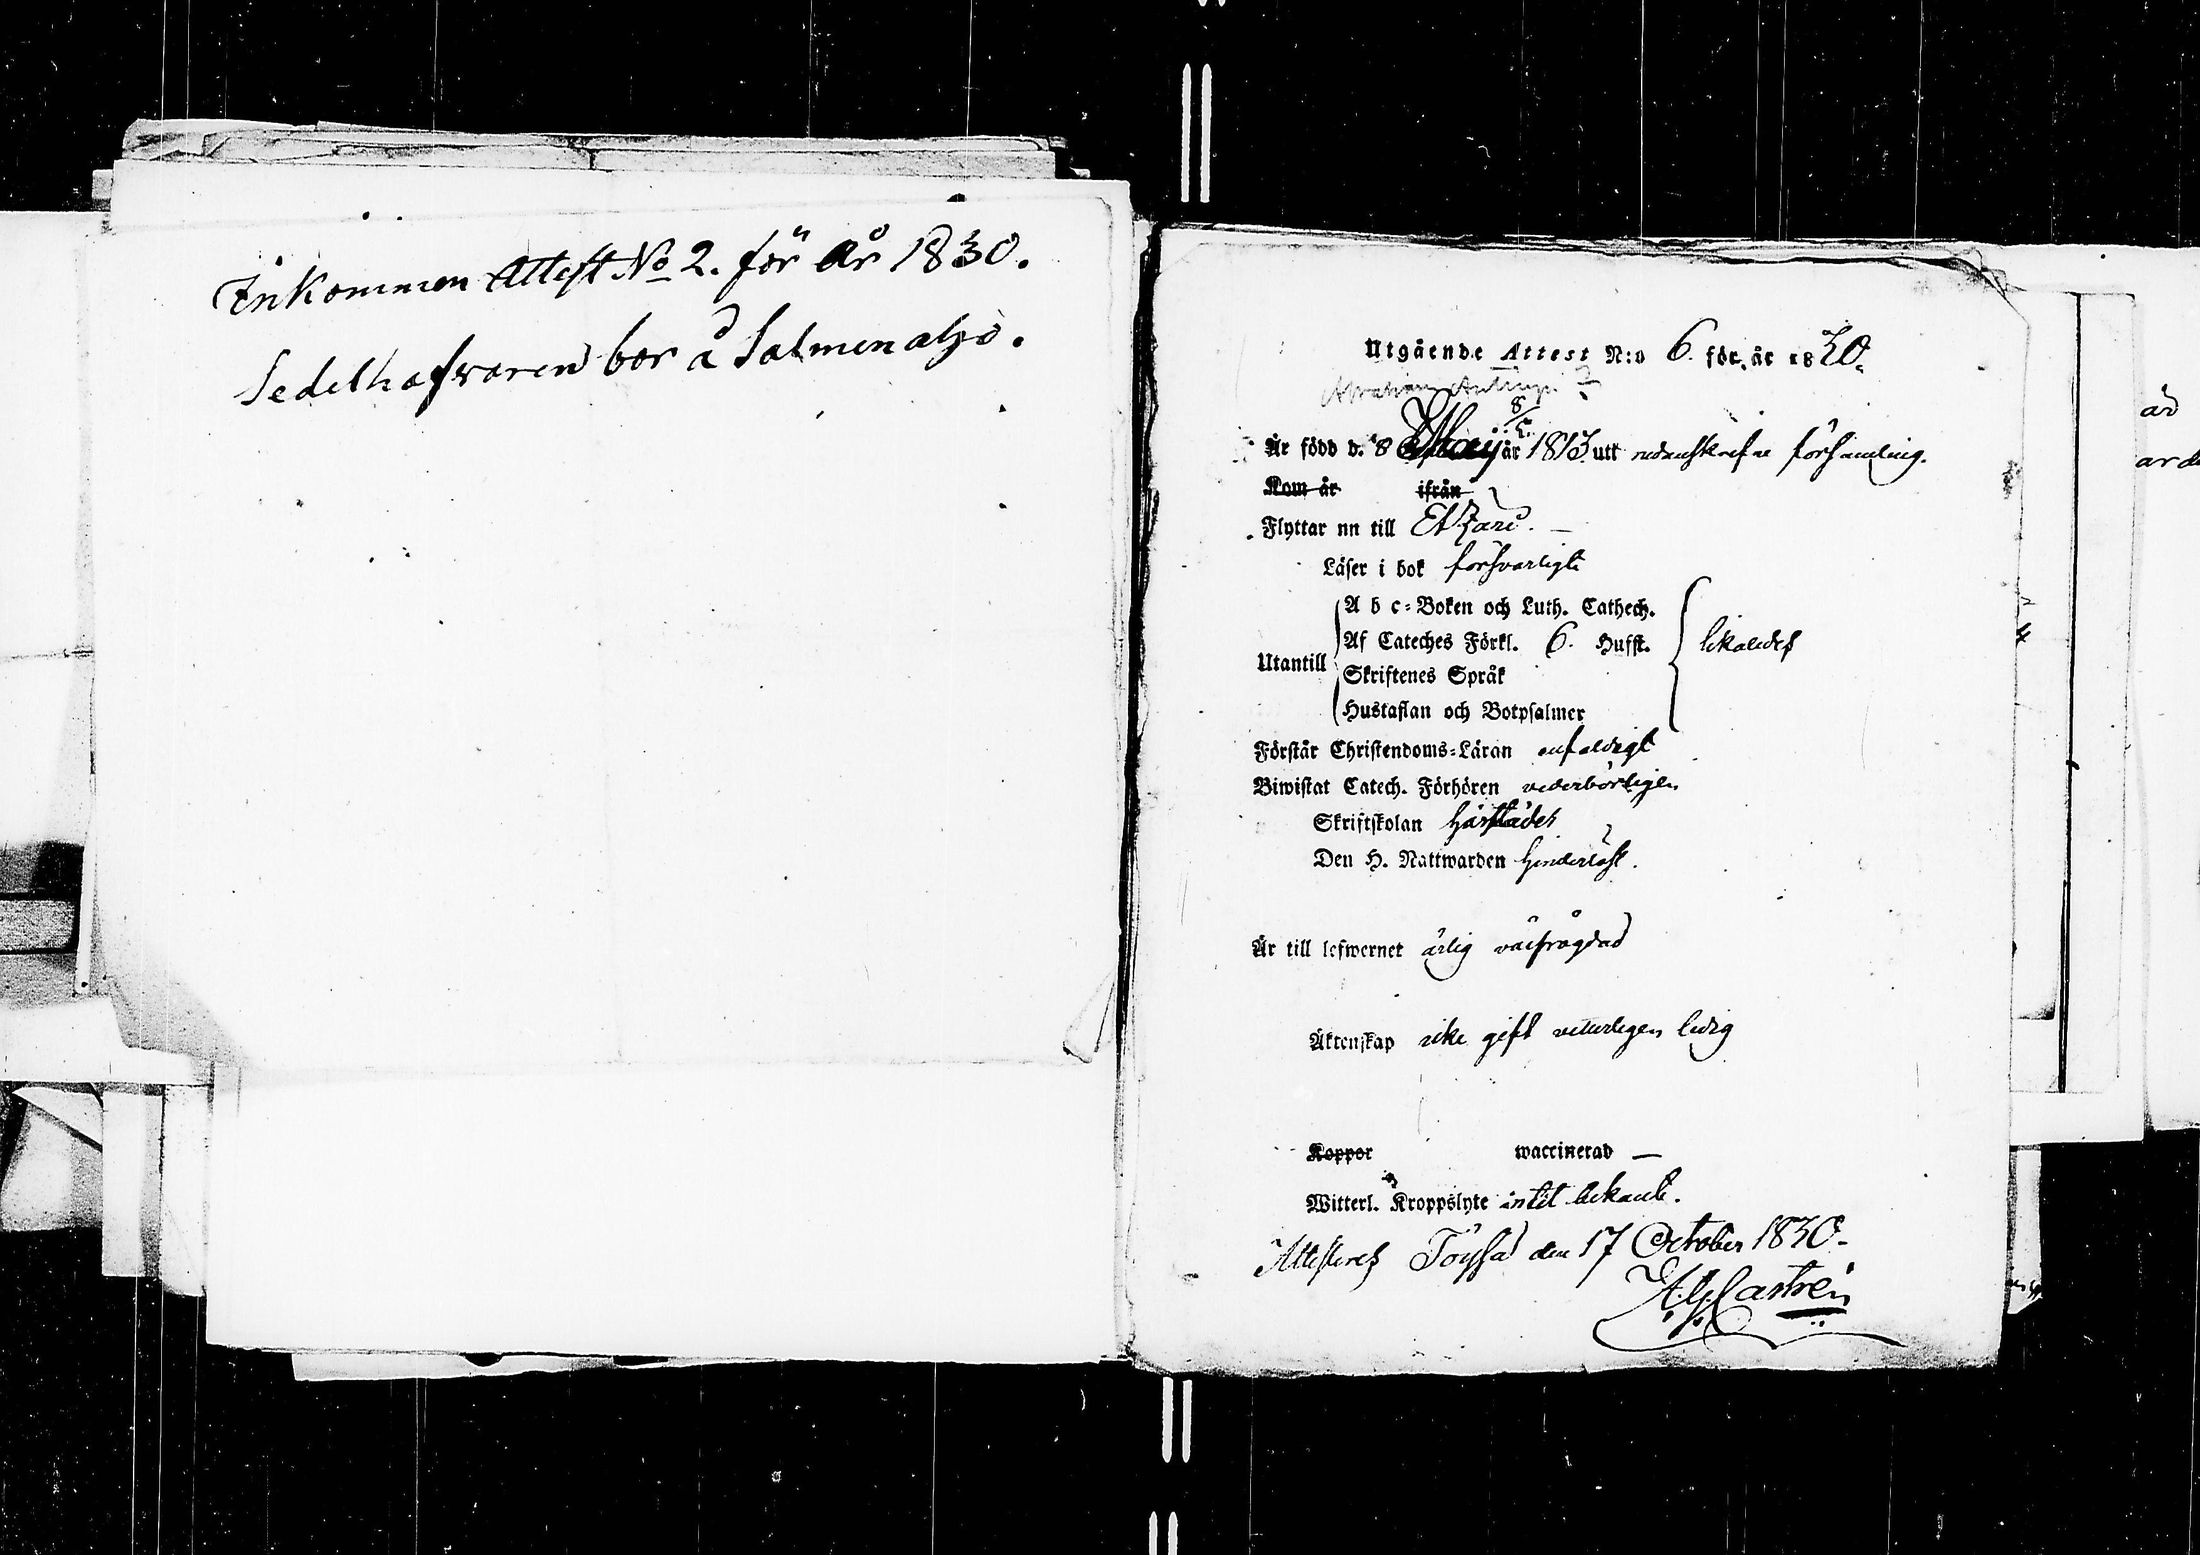 Inkommen Attest No 2. för år 1830.
Sedelhafvaren bor å Salmenalho.
Utgående Attest N:o 6. för år 1830.
Abraham
8/5.
Är född d. 8 Maij år 1813 utt nedanskrefne församling.
Kom år ifrån
Flyttar nu till Etzäri.
Läser i bok försvarligt
Utantill
A b c-Boken och Luth. Cathech.
Af Cateches Förkl. 6. Hufst.
Skriftenes Språk
Hustaflan och Botpsalmer
likaledes
Förstår Christendoms-Läran enfaldigt
Biwistat Catech. Förhören vederbörligen
Skriftskolan härstädes
Den H. Nattwarden hinderlöst.
Är till lefwernet ärlig välfrägdad
Äktenskap icke gift veterligen ledig
Koppor waccinerad —
Witterl. Kroppslyte intet bekant.
Attesteras Töysä den 17 October 1830.
A. G. Castrén
är